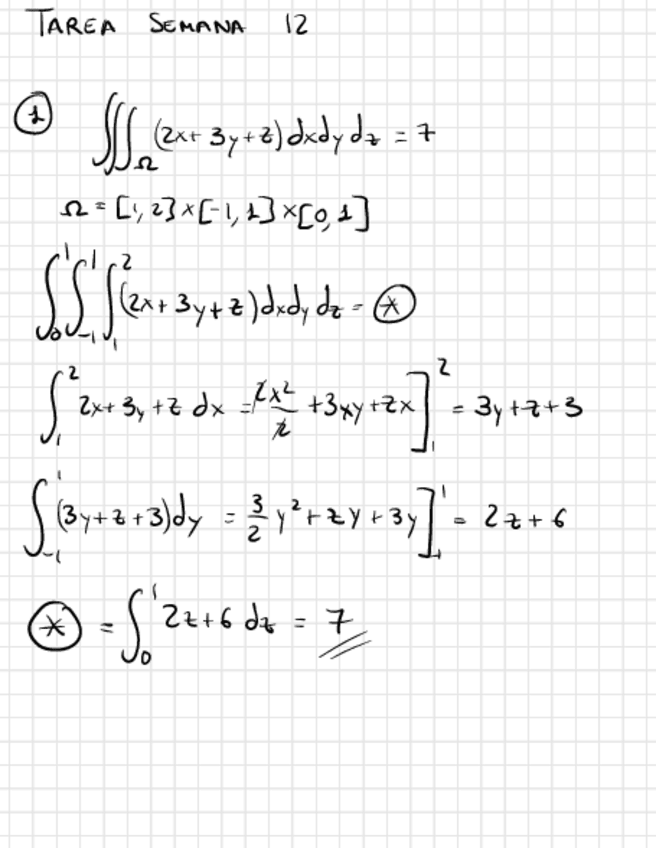 TAREA SEMANA 12
① ∭_Ω (2x+3y+z)dxdydz = 7
Ω = [1,2]×[-1,1]×[0,1]
∫_0^1 ∫_{-1}^1 ∫_1^2 (2x+3y+z)dxdydz = ⊛
∫_1^2 2x+3y+z dx = 2x²/2 +3xy+zx]_1^2 = 3y+z+3
∫_{-1}^1 (3y+z+3)dy = 3/2 y²+zy+3y]_{-1}^1 = 2z+6
⊛ = ∫_0^1 2z+6 dz = 7